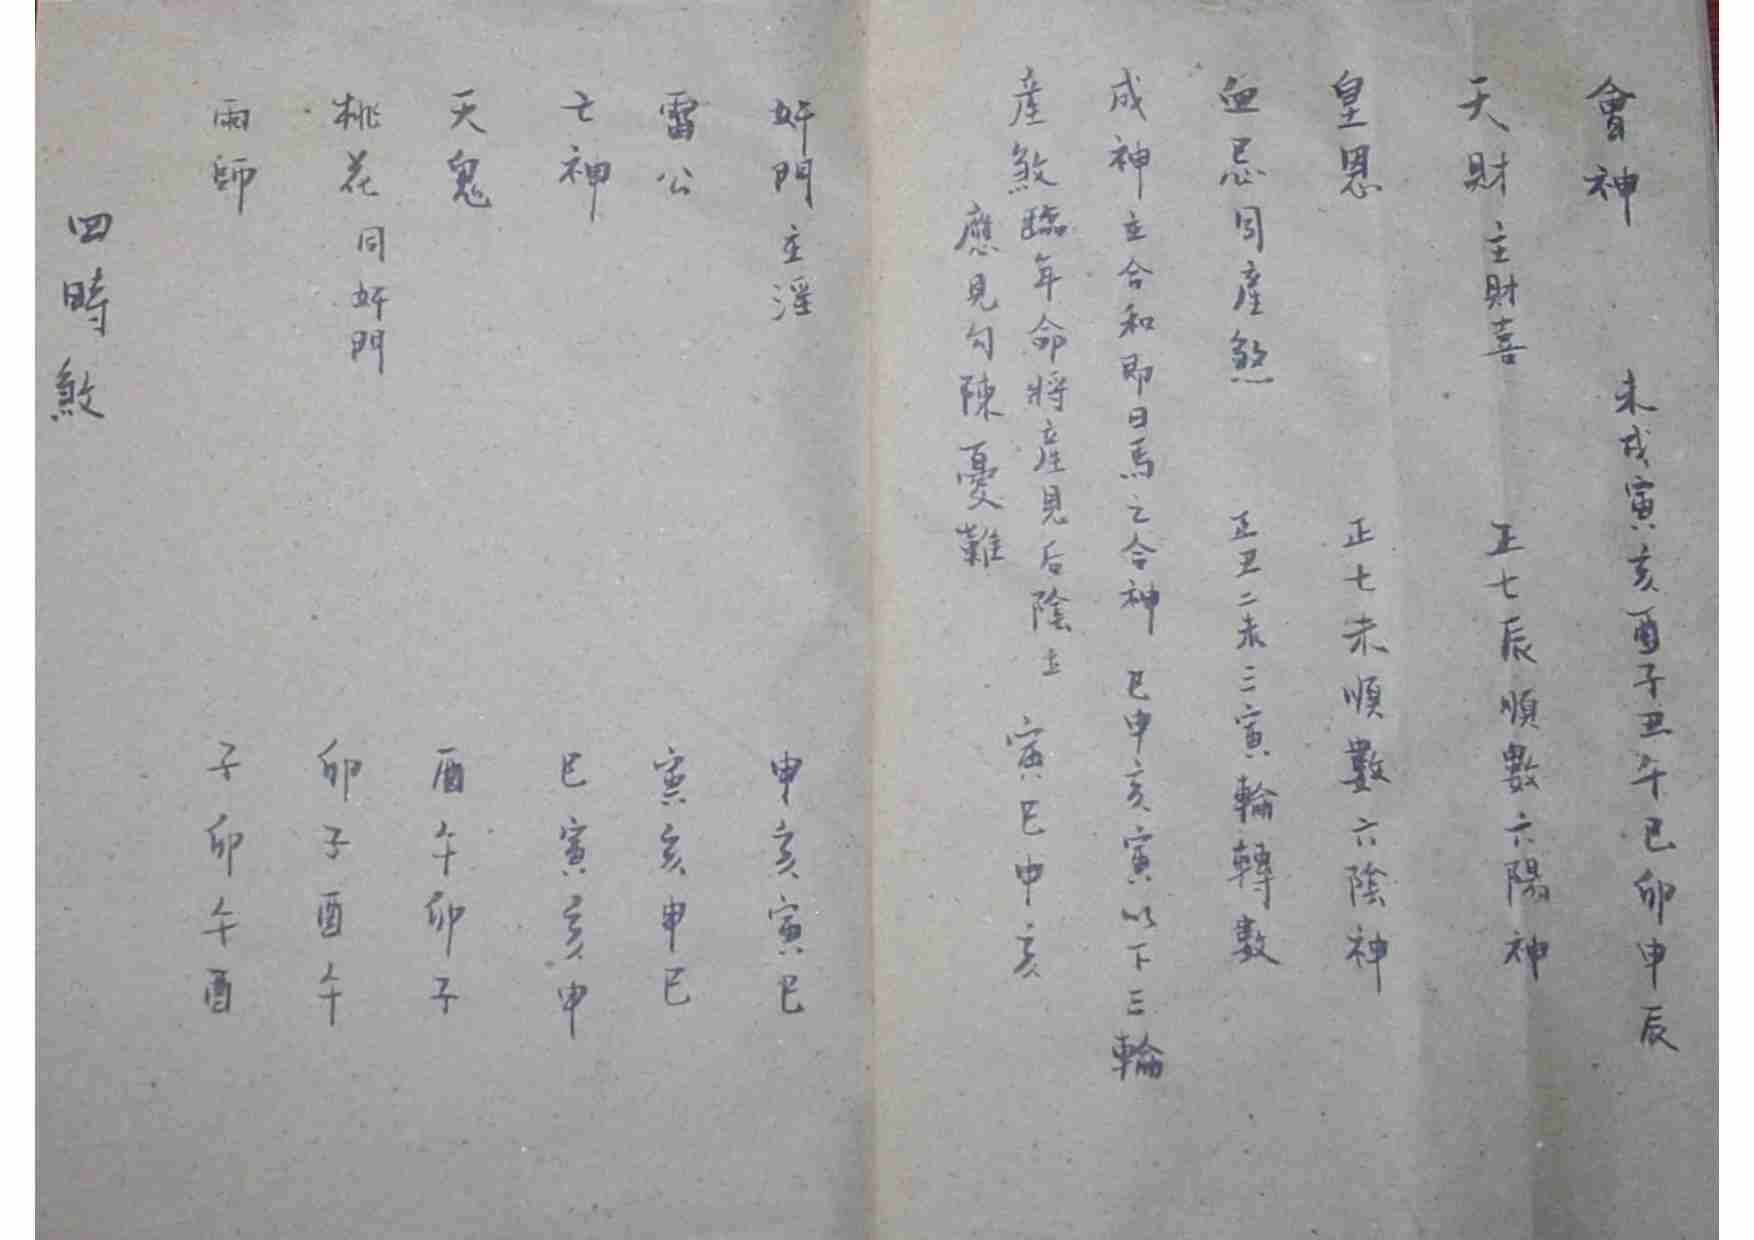 會神 未戌寅亥酉子丑午巳卯申辰
天財 主財喜 正七辰順數六陽神
皇恩 正七未順數六陰神
血忌同產煞 正丑二未三寅輪轉數
成神主合和即日馬之合神 巳申亥寅以下三輪
產煞臨年命將產見后陰土 寅巳申亥
應見勾陳憂難
奸門主淫 申亥寅巳
雷公 寅亥申巳
亡神 巳寅亥申
天鬼 酉午卯子
桃花同奸門 卯子酉午
雨師 子卯午酉
四時煞